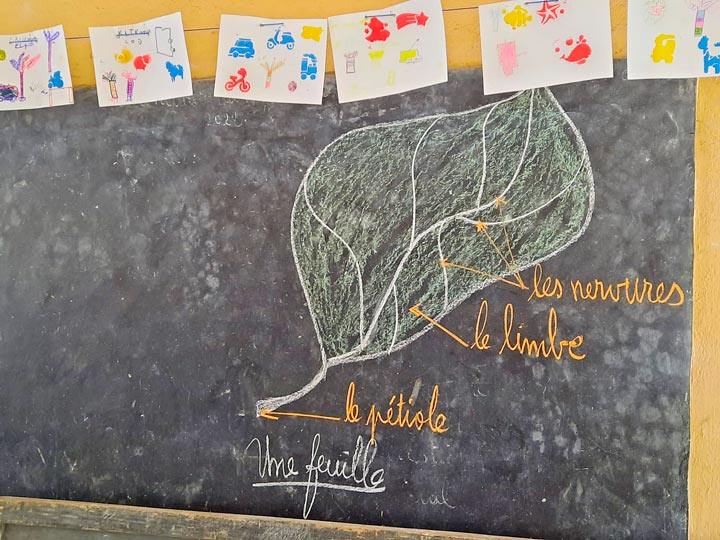 les nervures
le limbe
le pétiole
Une feuille